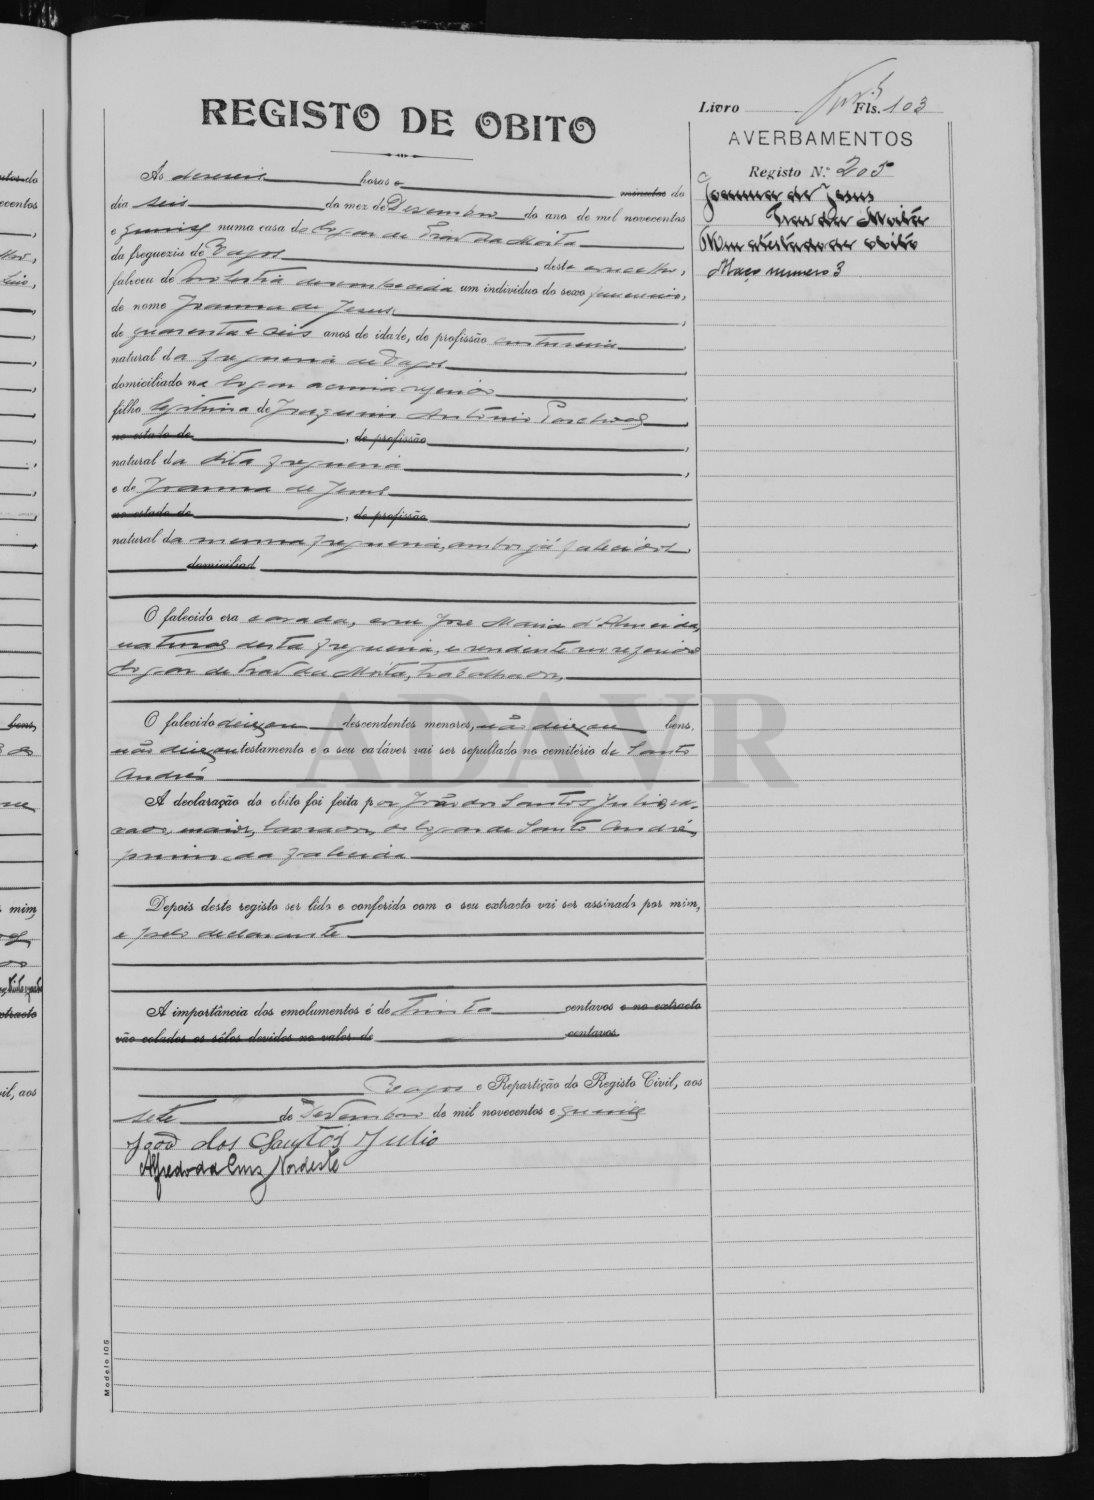 Livro Fls. 103
REGISTO DE OBITO
AVERBAMENTOS
Registo N.º 205
Joanna de Jesus
Traz da Moita
Um atestado de obito
Maço numero 3
Ás dezeseis horas e minutos do
dia seis do mez de Dezembro do ano de mil novecentos
e quinze numa casa do logar de Traz da Moita
da freguezia de Vagos, deste concelho,
faleceu de molestia desconhecida um individuo do sexo femenino,
de nome Joanna de Jesus,
de quarenta e seis anos de idade, de profissão costureira,
natural da freguezia de Vagos,
domiciliado no logar acima referido,
filho legitima de Joaquim António,
no estado de, de profissão
natural da dita freguezia,
e de Joanna de Jesus
no estado de, de profissão,
natural da mesma freguezia, ambos já falecidos
domiciliad
O falecido era casada, com José Maria d'Almeida,
natural desta freguezia, e residente no referido
logar de Traz da Moita, trabalhador,
O falecido deixou descendentes menores, não deixou bens,
não deixou testamento e o seu cadáver vai ser sepultado no cemitério de Santo
André
A declaração do obito foi feita por João dos Santos Julio, ca-
sado, maior, lavrador, do logar de Santo André,
primo da falecida
Depois deste registo ser lido e conferido com o seu extracto vai ser assinado por mim,
e pelo declarante
A importância dos emolumentos é de trinta centavos e no extracto
vão colados os sêlos devidos no valor de centavos.
Vagos e Repartição do Registo Civil, aos
sete de Dezembro de mil novecentos e quinze
João dos Santos Julio
Alfredo da Cruz Nordeste
Modelo 105
ADAVR